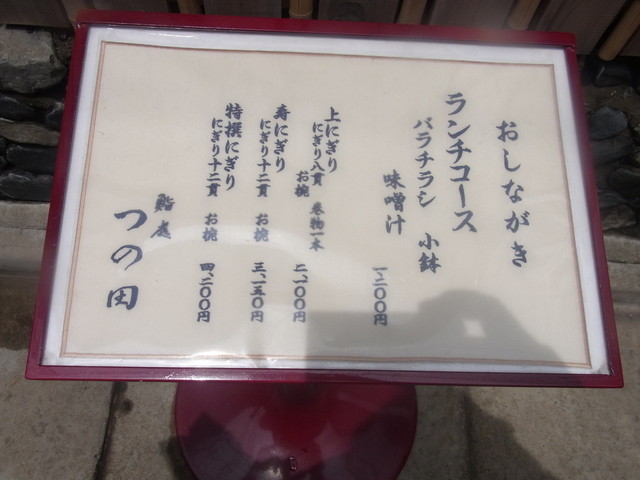 おしながき
ランチコース
バラチラシ 小鉢
味噌汁
一、二〇〇円
上にぎり
にぎり八貫 巻物一本
お椀
二、一〇〇円
寿にぎり
にぎり十二貫 お椀
三、一五〇円
特撰にぎり
にぎり十二貫 お椀
四、二〇〇円
鮨処
つの田